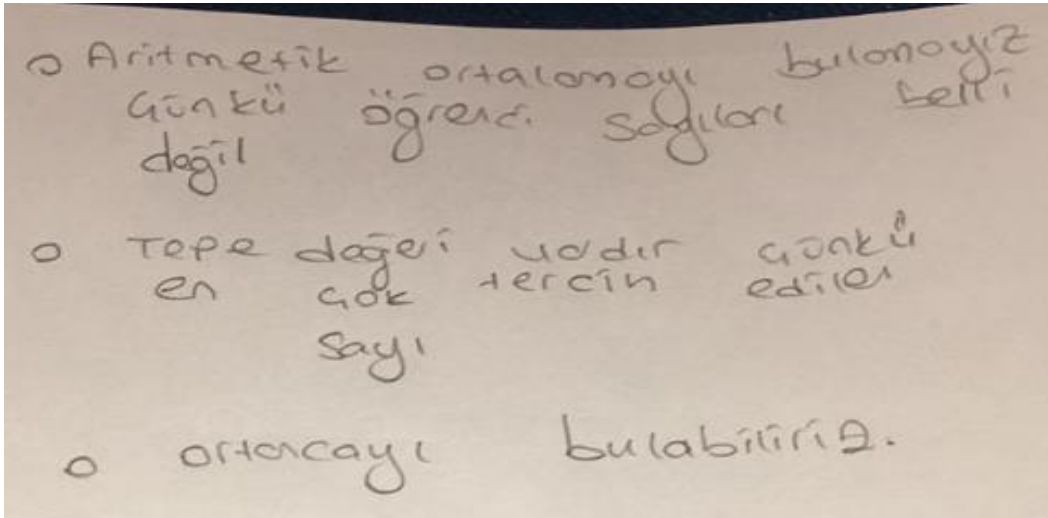 o Aritmetik ortalamayı bulamayız
çünkü öğrenci sayıları belli
değil
o Tepe değeri vardır çünkü
en çok tercih edilen
sayı
o ortancayı bulabiliriz.